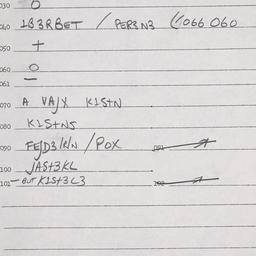 030 O
040 1B3RBET / PER3N3 (1066 060
050 +
060 O
061 –
070 A VAJX K1StN
080 K1StNS
090 FEJD3 / POX 091
100 JASt3KL
101 – BUT K1St3C3